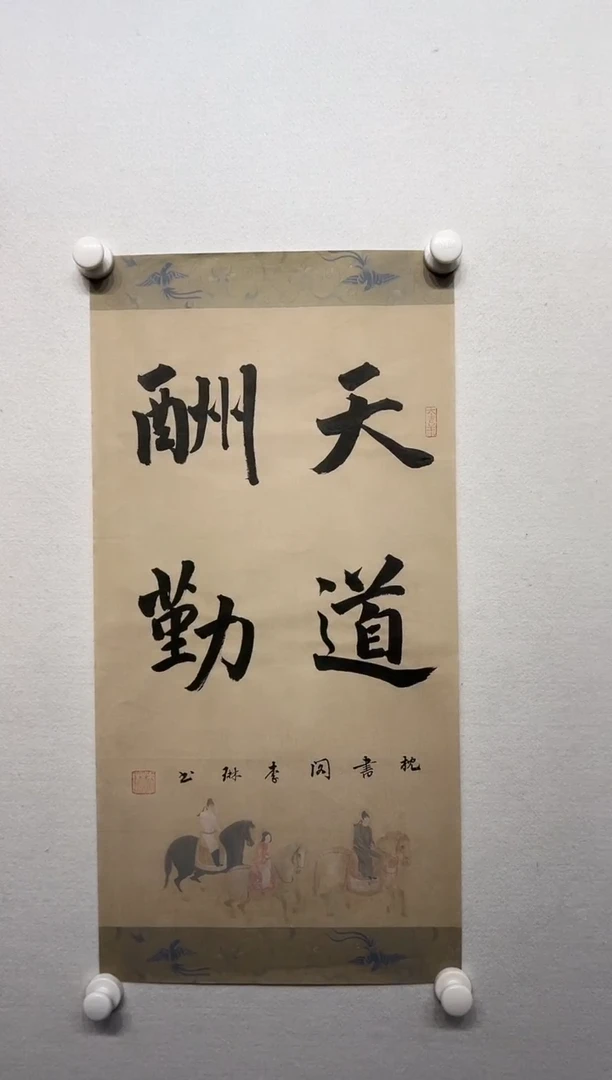 天道
酬勤
枕書閣李琳书